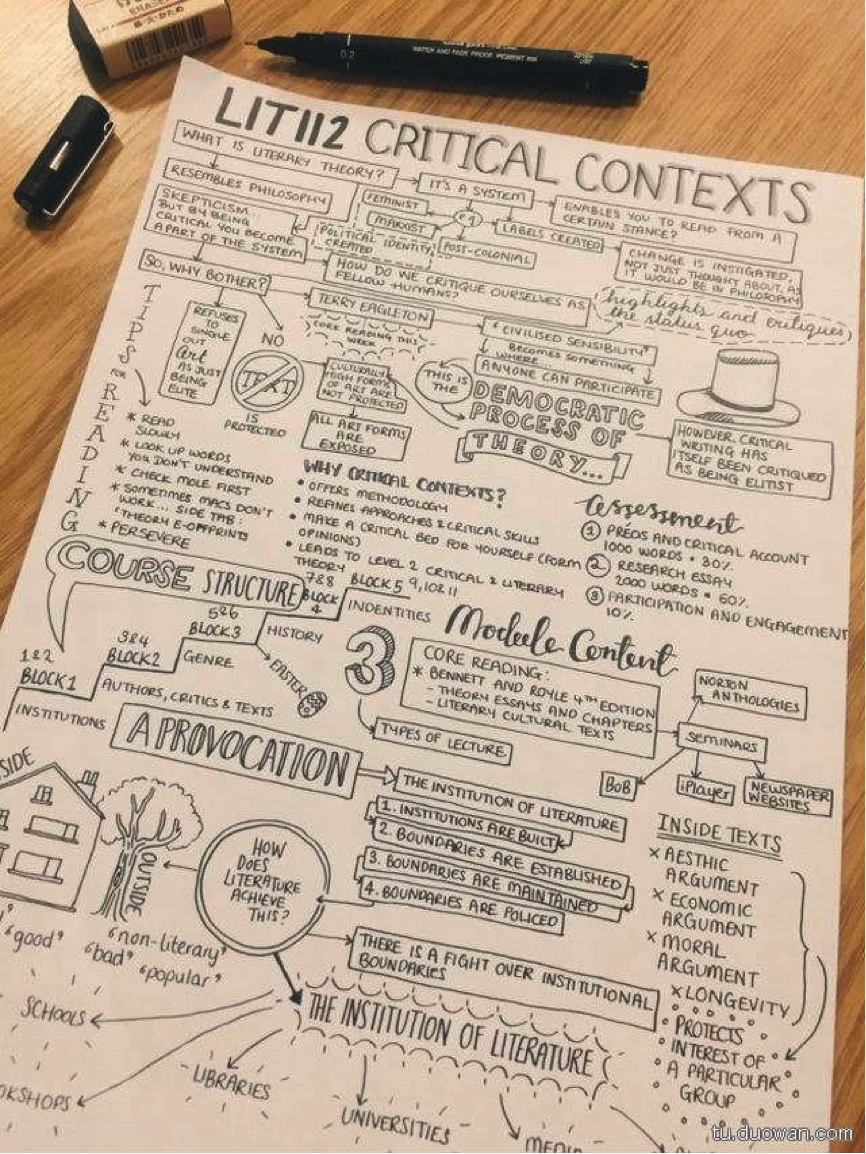 ERASER
0.2
WATER AND FADE PROOF, PIGMENT INK
LIT112 CRITICAL CONTEXTS
WHAT IS LITERARY THEORY?
IT'S A SYSTEM
ENABLES YOU TO READ FROM A
CERTAIN STANCE?
RESEMBLES PHILOSOPHY
FEMINIST
MARXIST
eg
LABELS CREATED
POST-COLONIAL
POLITICAL IDENTITY
CREATED
SKEPTICISM...
BUT BY BEING
CRITICAL YOU BECOME
A PART OF THE SYSTEM
CHANGE IS INSTIGATED,
NOT JUST THOUGHT ABOUT, AS
IT WOULD BE IN PHILOSOPHY
SO, WHY BOTHER?
HOW DO WE CRITIQUE OURSELVES AS
FELLOW HUMANS?
highlights and critiques
the status quo
TERRY EAGLETON
CORE READING THIS
WEEK
'CIVILISED SENSIBILITY'
BECOMES SOMETHING
WHERE
ANYONE CAN PARTICIPATE
THIS IS
THE
DEMOCRATIC
PROCESS OF
THEORY...
HOWEVER, CRITICAL
WRITING HAS
ITSELF BEEN CRITIQUED
AS BEING ELITIST
REFUSES
TO
SINGLE
OUT
Art
AS JUST
BEING
ELITE
NO
TEXT
IS
PROTECTED
CULTURALLY
HIGH FORMS
OF ART ARE
NOT PROTECTED
ALL ART FORMS
ARE
EXPOSED
TIPS
FOR
READING
* READ
SLOWLY
* LOOK UP WORDS
YOU DON'T UNDERSTAND
* CHECK MOLE FIRST
* SOMETIMES MACS DON'T
WORK... SIDE TAB:
'THEORY E-OFFPRINTS
* PERSEVERE
WHY CRITICAL CONTEXTS?
• OFFERS METHODOLOGY
• REFINES APPROACHES & CRITICAL SKILLS
• MAKE A CRITICAL BED FOR YOURSELF (FORM
OPINIONS)
• LEADS TO LEVEL 2 CRITICAL & LITERARY
THEORY
assessment
① PRÉCIS AND CRITICAL ACCOUNT
1000 WORDS • 30%
② RESEARCH ESSAY
2000 WORDS • 60%
③ PARTICIPATION AND ENGAGEMENT
10%
COURSE STRUCTURE
1&2
BLOCK 1
INSTITUTIONS
3&4
BLOCK 2
AUTHORS, CRITICS & TEXTS
5&6
BLOCK 3
GENRE
EASTER
7&8
BLOCK
4
HISTORY
BLOCK 5 9,10&11
INDENTITIES
Module Content
3
CORE READING:
* BENNETT AND ROYLE 4TH EDITION
- THEORY ESSAYS AND CHAPTERS
- LITERARY CULTURAL TEXTS
TYPES OF LECTURE
NORTON
ANTHOLOGIES
SEMINARS
BoB
iPlayer
NEWSPAPER
WEBSITES
A PROVOCATION
THE INSTITUTION OF LITERATURE
1. INSTITUTIONS ARE BUILT
2. BOUNDARIES ARE ESTABLISHED
3. BOUNDARIES ARE MAINTAINED
4. BOUNDARIES ARE POLICED
THERE IS A FIGHT OVER INSTITUTIONAL
BOUNDARIES
SIDE
OUTSIDE
HOW
DOES
LITERATURE
ACHIEVE
THIS?
'good'
'non-literary'
'bad'
'popular'
INSIDE TEXTS
× AESTHIC
ARGUMENT
× ECONOMIC
ARGUMENT
× MORAL
ARGUMENT
× LONGEVITY
PROTECTS
INTEREST OF
A PARTICULAR
GROUP
THE INSTITUTION OF LITERATURE
SCHOOLS
OKSHOPS
LIBRARIES
UNIVERSITIES
MEDIA
tu.duowan.com